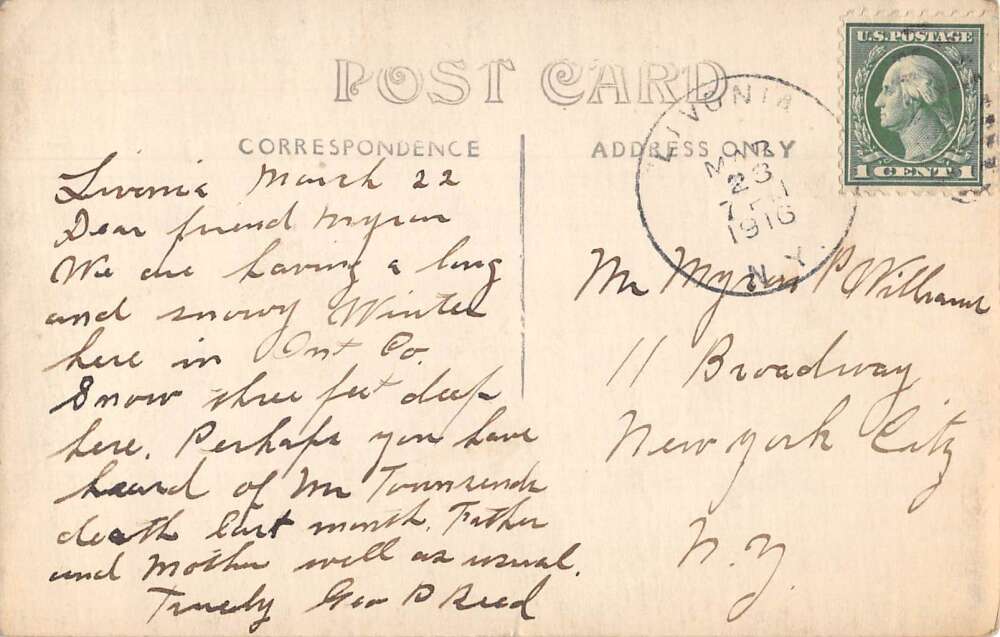 POST CARD
CORRESPONDENCE
ADDRESS ONLY
U.S. POSTAGE
1 CENT 1
LIVONIA
MAR
23
7 PM
1916
N.Y.
Livonia March 22
Dear friend Myron
We are having a long
and snowy Winter
here in Ont Co.
Snow three feet deep
here. Perhaps you have
heard of Mr Townsends
death last month. Father
and Mother well as usual.
Truely Geo P Reed
Mr Myron P Willi
11 Broadway
New York City
N.Y.